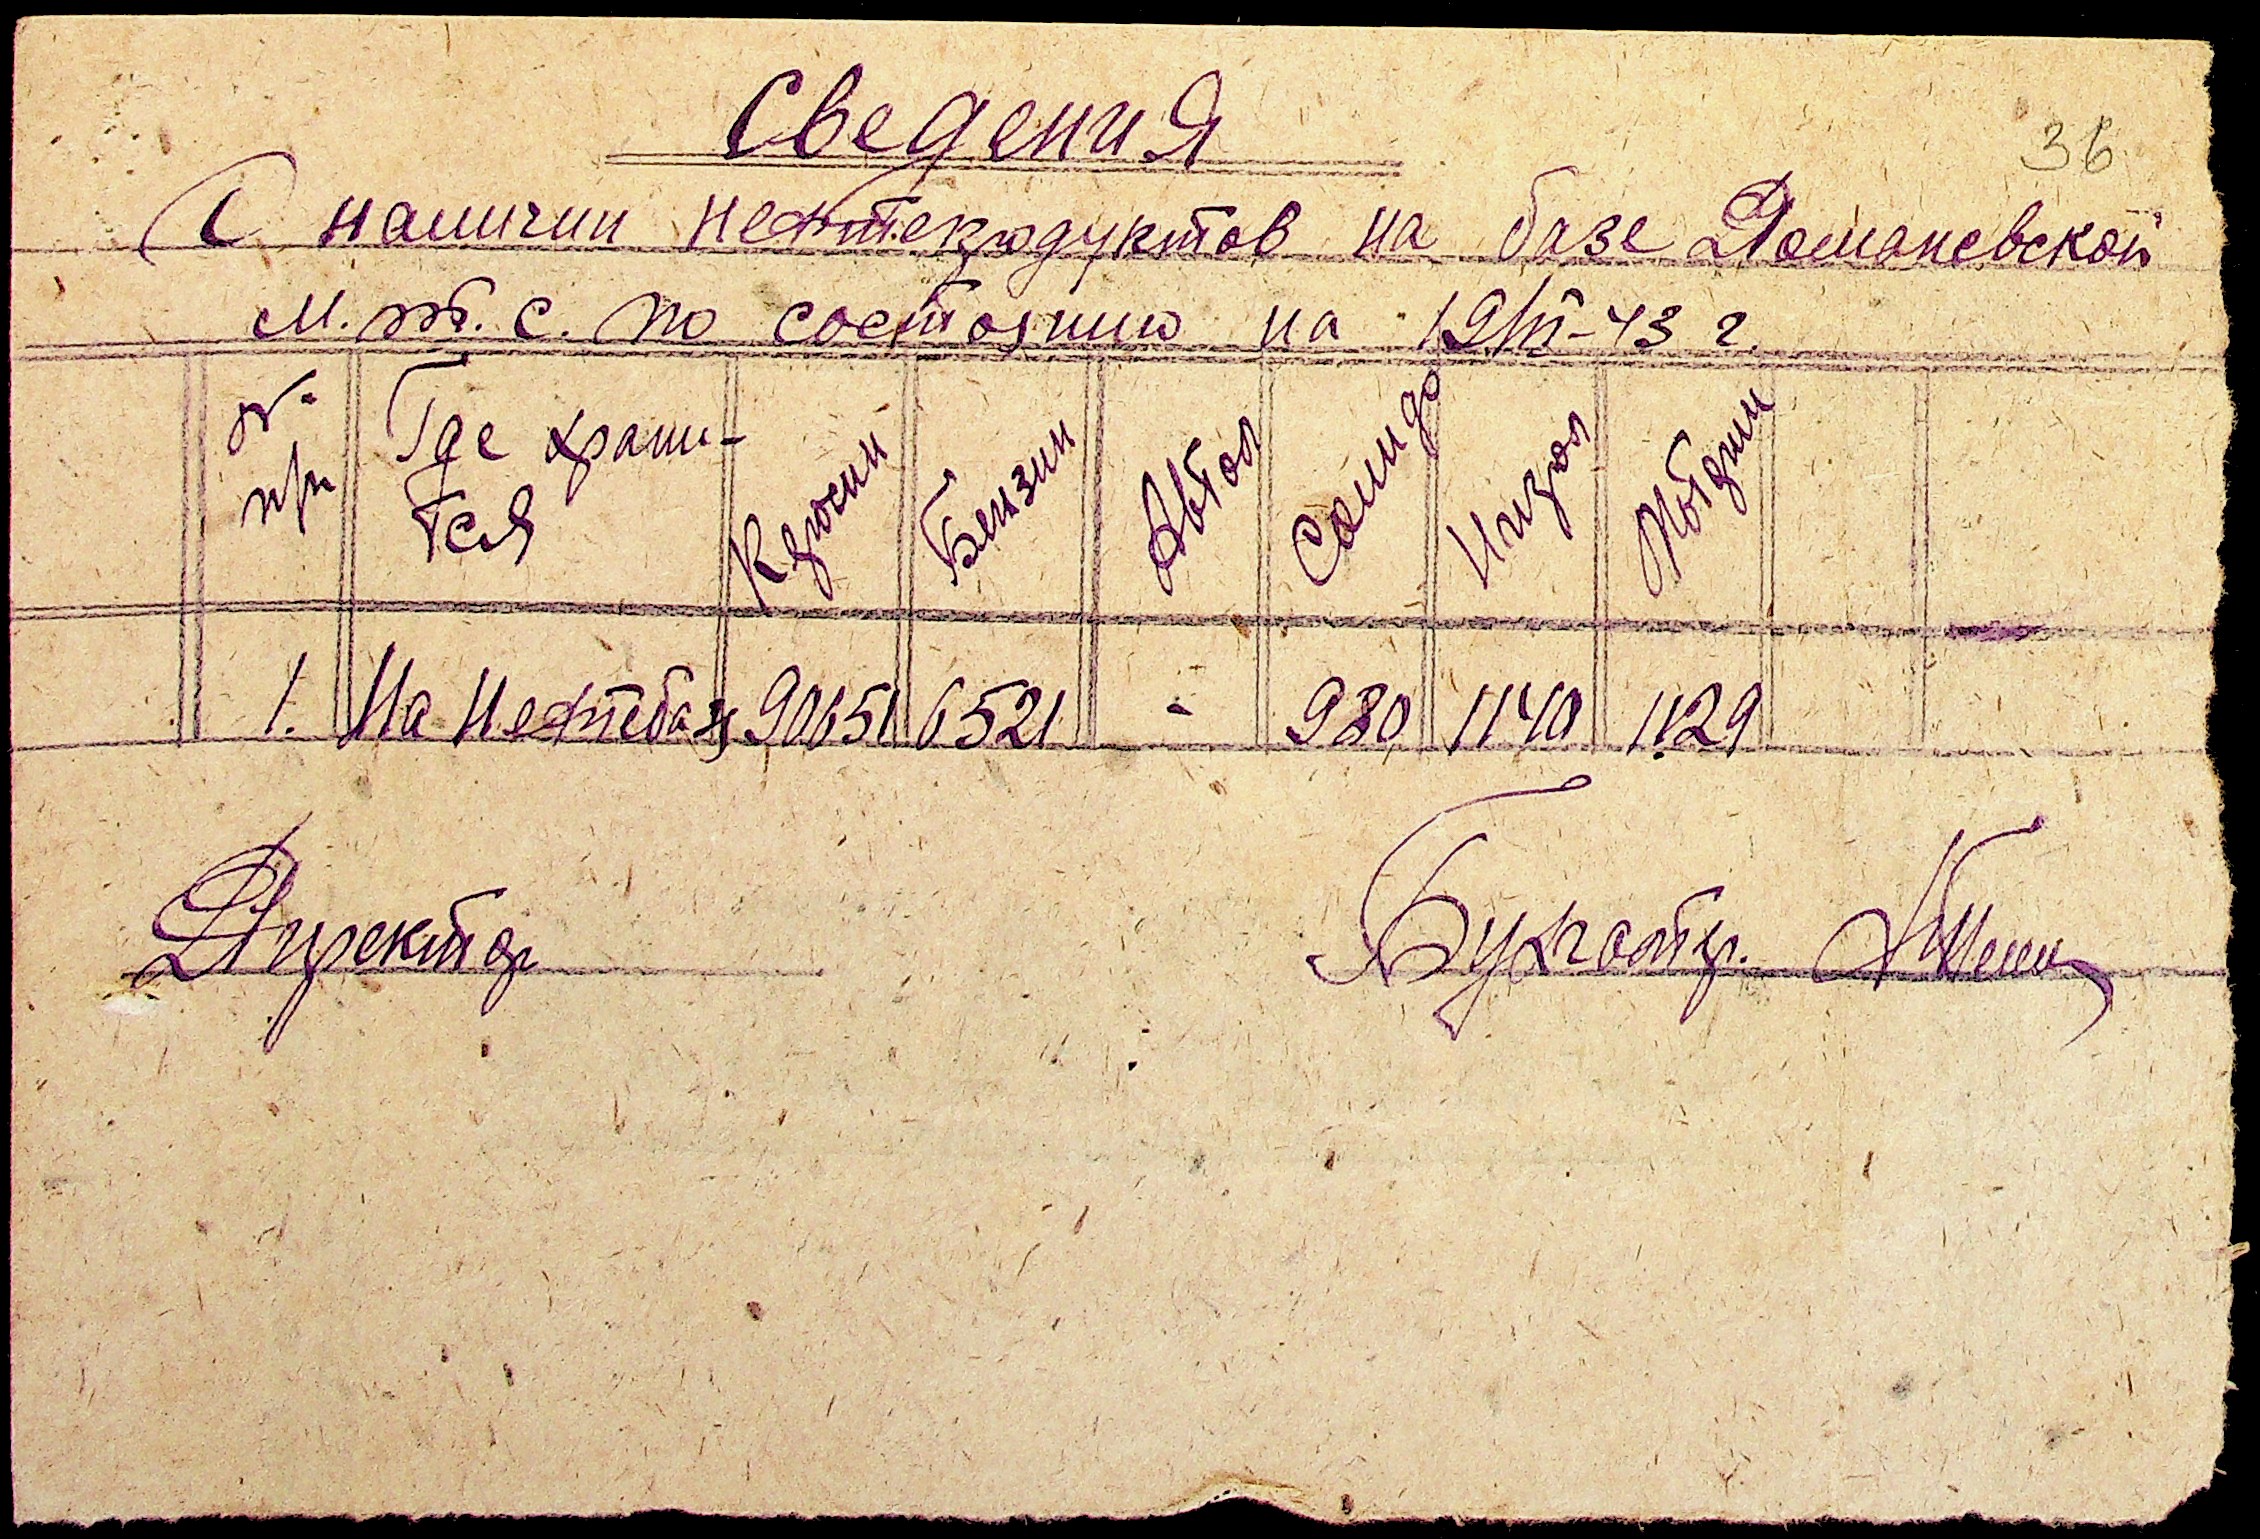 Сведения
36
О наличии нефтепродуктов на базе Доманевской
м. т. с. по состоянию на 19/VI-43 г.
№ п/п Где храни- Керосин Бензин Автол Солид. Нигрол Мотрин
тся
1. На Нефтебазе 90651 6521 - 980 1140 1129
Директор Бухгалтер.